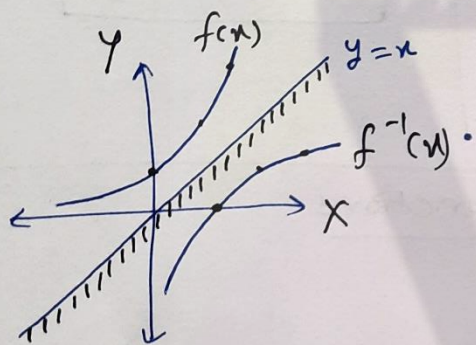 Y
f(x)
y=x
f⁻¹(x).
X